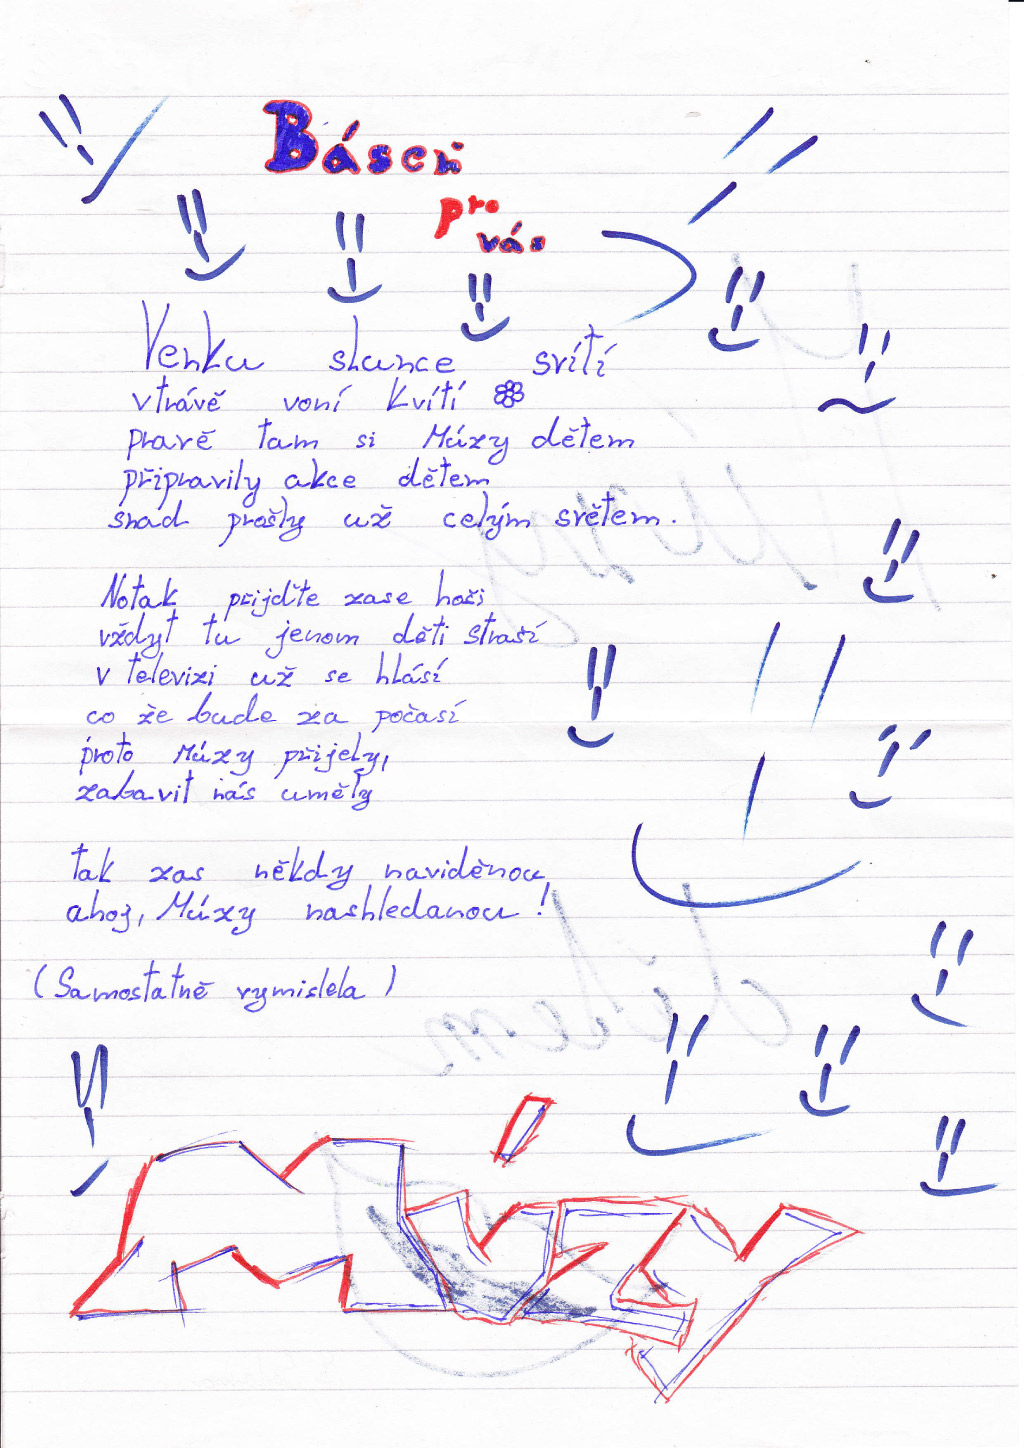 Báseň
pro
vás
Venku slunce svítí
v trávě voní kvítí
pravě tam si Múzy dětem
připravily akce dětem
snad prošly už celým světem.
No tak přijďte zase hoši
vždyť tu jenom děti straší
v televizi už se hlásí
co že bude za počasí
proto Múzy přijely,
zabavit nás uměly
tak zas někdy naviděnou
ahoj, Múzy nashledanou!
(Samostatně vymislela)
Múzy
Múzy
dětem